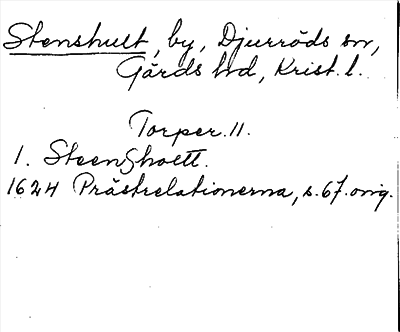 Stenshult, by, Djurröds sn,
Gärds hd, Krist. l.
Torper. 11.
1. Steenshoett.
1624 Prästrelationerna, s. 67. orig.